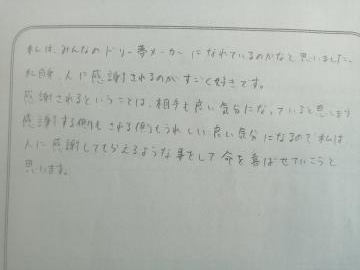 私は、みんなのドリー夢メーカーになれているのかなと思いました。
私自身、人に感謝されるのがすごく好きです。
感謝されるということは、相手も良い気分になっていると思います
感謝する側もされる側もうれしい良い気分になるので私は、
人に感謝してもらえるような事をして命を喜ばせていこうと
思います。